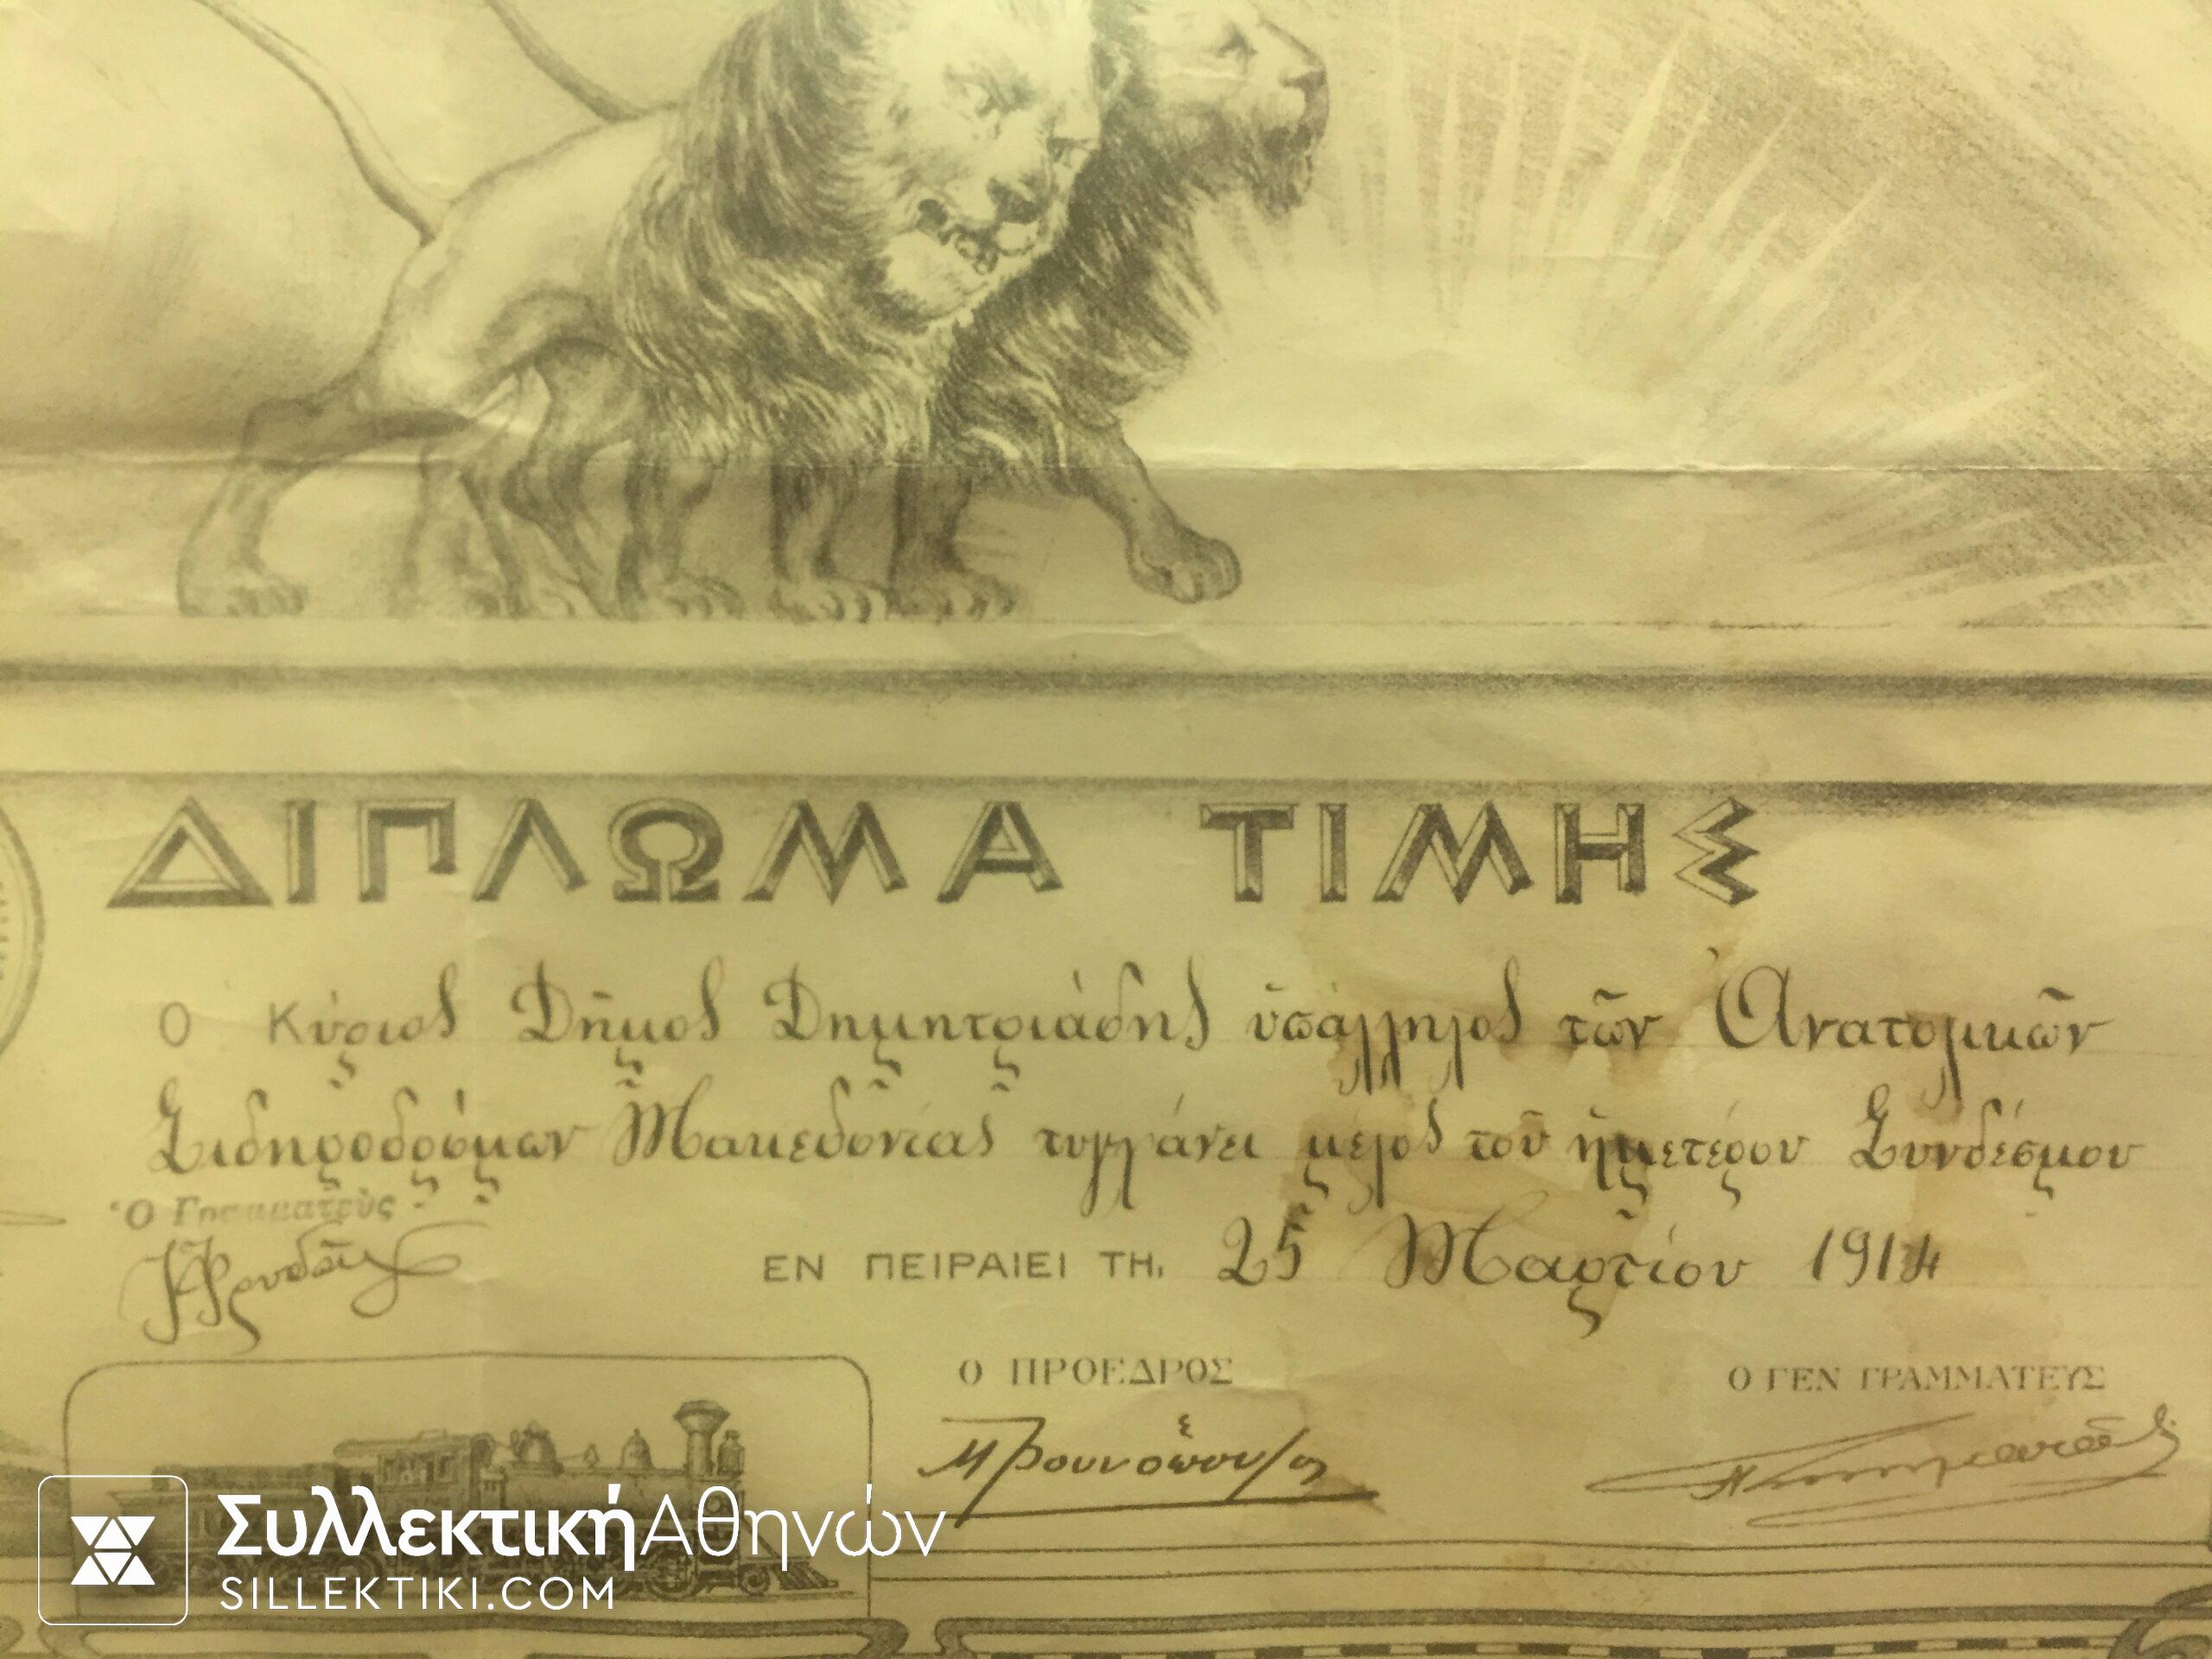 ΔΙΠΛΩΜΑ ΤΙΜΗΣ
Ο Κύριος Δῆμος Δημητριάδης ὑπάλληλος τῶν Ἀνατολικῶν
Σιδηροδρόμων Μακεδονίας τυγχάνει μέλος τοῦ ἡμετέρου Συνδέσμου
Ὁ Γραμματεὺς
ΕΝ ΠΕΙΡΑΙΕΙ ΤΗ, 25 Μαρτίου 1914
Ο ΠΡΟΕΔΡΟΣ
Ο ΓΕΝ ΓΡΑΜΜΑΤΕΥΣ
ΣυλλεκτικήΑθηνών
SILLEKTIKI.COM